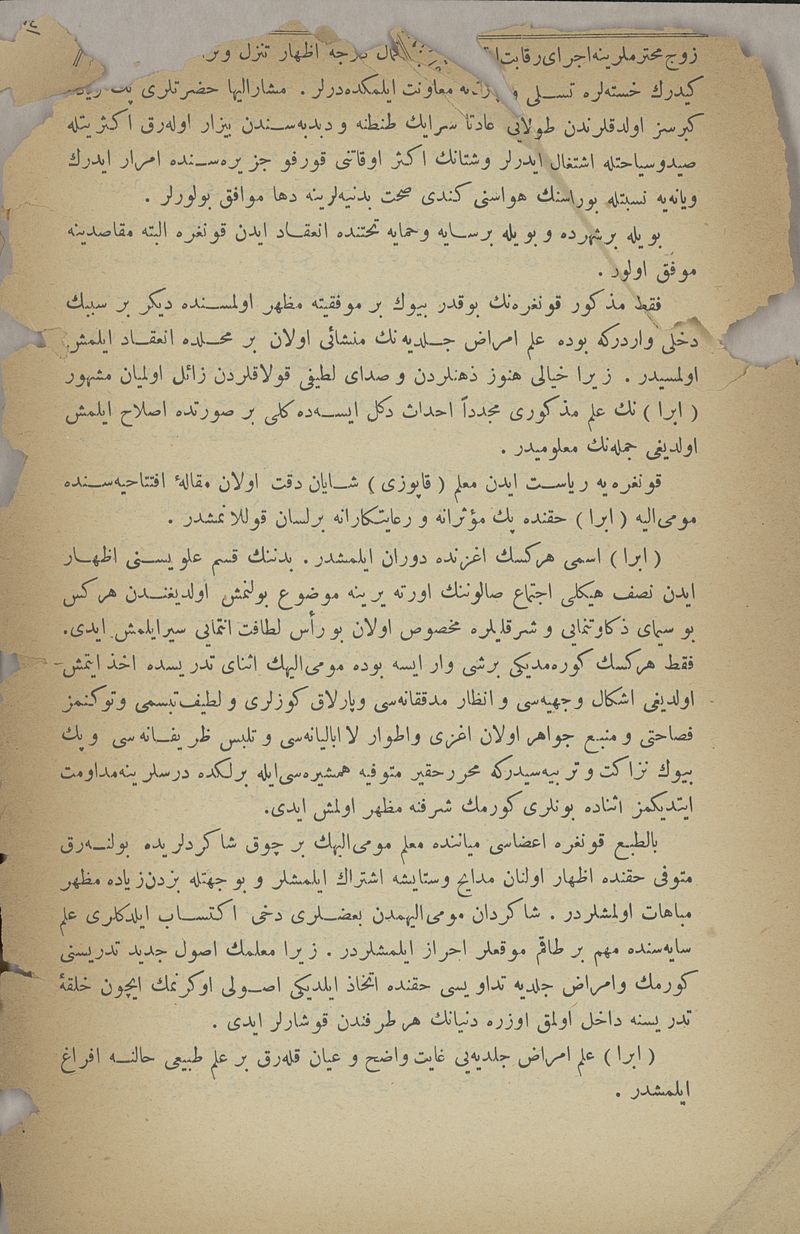 زوج محترملرينه اجراى رقابت كمال درجه اظهار تنزل
كيدرك خسته‌لره تسلى و معاونت ايلمكده‌درلر . مشاراليها حضرتلرى پك
كبرسز اولدقلرندن طولايى عادتا سرايك طنطنه و دبدبه‌سندن بيزار اوله‌رق اكثريتله
صيدوسياحتله اشتغال ايدرلر وشتانك اكثر اوقاتنى قورفو جزيره‌سنده امرار ايدرك
ويانه‌يه نسبتله بوراسنك هواسنى كندى صحت بدنيه‌لرينه دها موافق بولورلر .
بويله برشهرده و بويله برسايه وحمايه تحتنده انعقاد ايدن قونغره البته مقاصدينه
موفق اولور .
فقط مذكور قونغره‌نك بوقدر بيوك بر موفقيته مظهر اولمسنده ديكر بر سببك
دخلى واردركه بوده علم امراض جلديه‌نك منشائى اولان بر محلده انعقاد ايلمش
اولمسيدر . زيرا خيالى هنوز ذهنلردن و صداى لطيفى قولاقلردن زائل اولميان مشهور
( ابرا ) نك علم مذكورى مجدداً احداث دكل ايسه‌ده كلى بر صورتده اصلاح ايلمش
اولديغى جمله‌نك معلوميدر .
قونغره‌يه رياست ايدن معلم ( قاپوزى ) شايان دقت اولان مقالهٔ افتتاحيه‌سنده
مومى‌اليه ( ابرا ) حقنده پك مؤثرانه و رعايتكارانه برلسان قوللانمشدر .
( ابرا ) اسمى هركسك اغزنده دوران ايلمشدر . بدننك قسم علويسنى اظهار
ايدن نصف هيكلى اجتماع صالوننك اورته يرينه موضوع بولنمش اولديغندن هركس
بو سيماى ذكاوتنمايى و شرقليلره مخصوص اولان بو رأس لطافت انتمايى سيرايلمش ايدى.
فقط هركسك كوره‌مديكى برشى وار ايسه بوده مومى‌اليهك اثناى تدريسده اخذ ايتمش
اولديغى اشكال وجهيه‌سى و انظار مدققانه‌سى وپارلاق كوزلرى و لطيف تبسمى وتوكنمز
فصاحتى و منبع جواهر اولان اغزى واطوار لااباليانه‌سى و تلبس ظريفانه‌سى وپك
بيوك نزاكت و تربيه‌سيدركه محرر حقير متوفيه همشيره‌سى ايله برلكده درسلرينه مداومت
ايتديكمز اثناده بونلرى كورمك شرفنه مظهر اولمش ايدى.
بالطبع قونغره اعضاسى مياننده معلم مومى‌اليهك بر چوق شاكردلريده بولنه‌رق
متوفى حقنده اظهار اولنان مدايح وستايشه اشتراك ايلمشلر و بو جهتله بزدن زياده مظهر
مباهات اولمشلردر . شاكردان مومى‌اليهمدن بعضلرى دخى اكتساب ايلدكلرى علم
سايه‌سنده مهم بر طاقم موقعلر احراز ايلمشلردر . زيرا معلمك اصول جديد تدريسنى
كورمك وامراض جلديه تداويسى حقنده اتخاذ ايلديكى اصولى اوكرنمك ايچون خلقهٔ
تدريسنه داخل اولمق اوزره دنيانك هر طرفندن قوشارلر ايدى .
( ابرا ) علم امراض جلديه‌يى غايت واضح و عيان قله‌رق بر علم طبيعى حالنه افراغ
ايلمشدر .